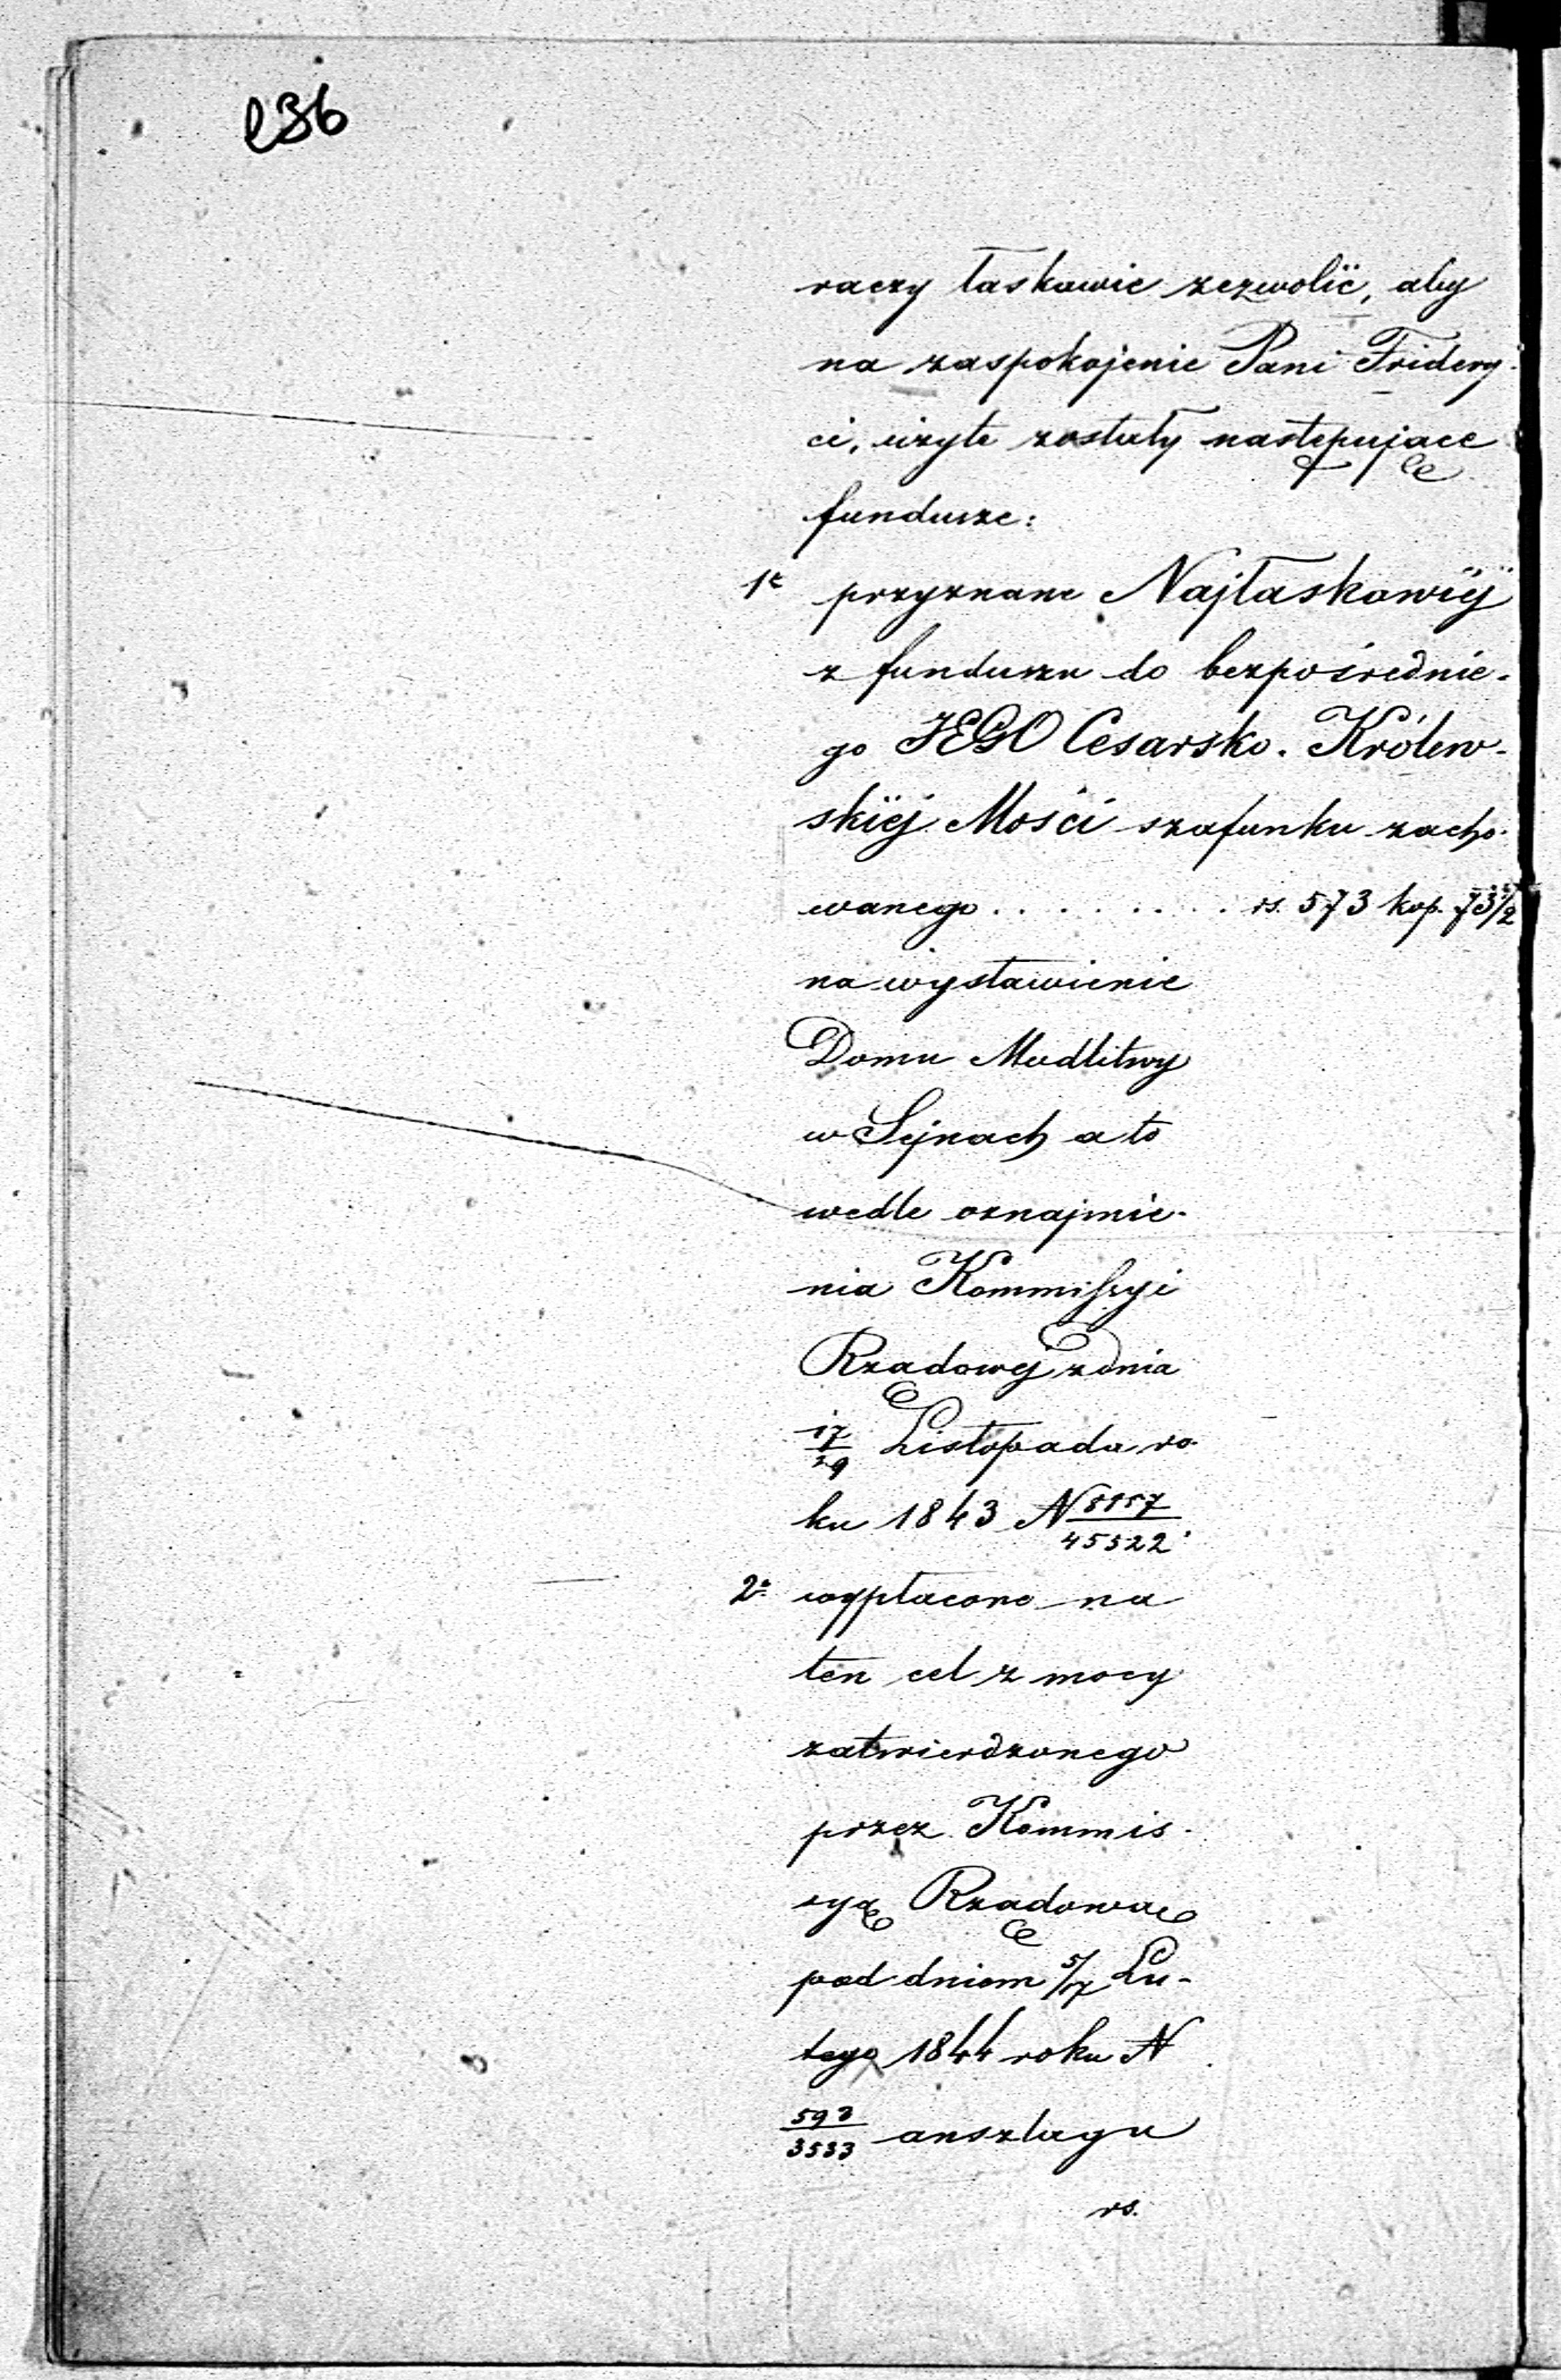 236
raczy łaskawie zezwolić, aby
na zaspokojenie Pani Fridery-
ci, użyte zostały następujące
fundusze:
1e przyznane Najłaskawiéj
z funduszu do bezpośrednie-
go JEGO Cesarsko-Królew-
skiéj Mości szafunku zacho-
wanego . . . . . . . . . rs. 573 kop. 73 1/2
na wystawienie
Domu Modlitwy
w Sejnach a to
wedle oznajmie-
nia Kommissyi
Rządowej z dnia
17/29 Listopada ro-
ku 1843 N 8957/45522.
2e wypłacone na
ten cel z mocy
zatwierdzonego
przez Kommis-
syą Rządową
pod dniem 5/17 Lu-
tego 1844 roku N
593/3533 anszlagu
rs.